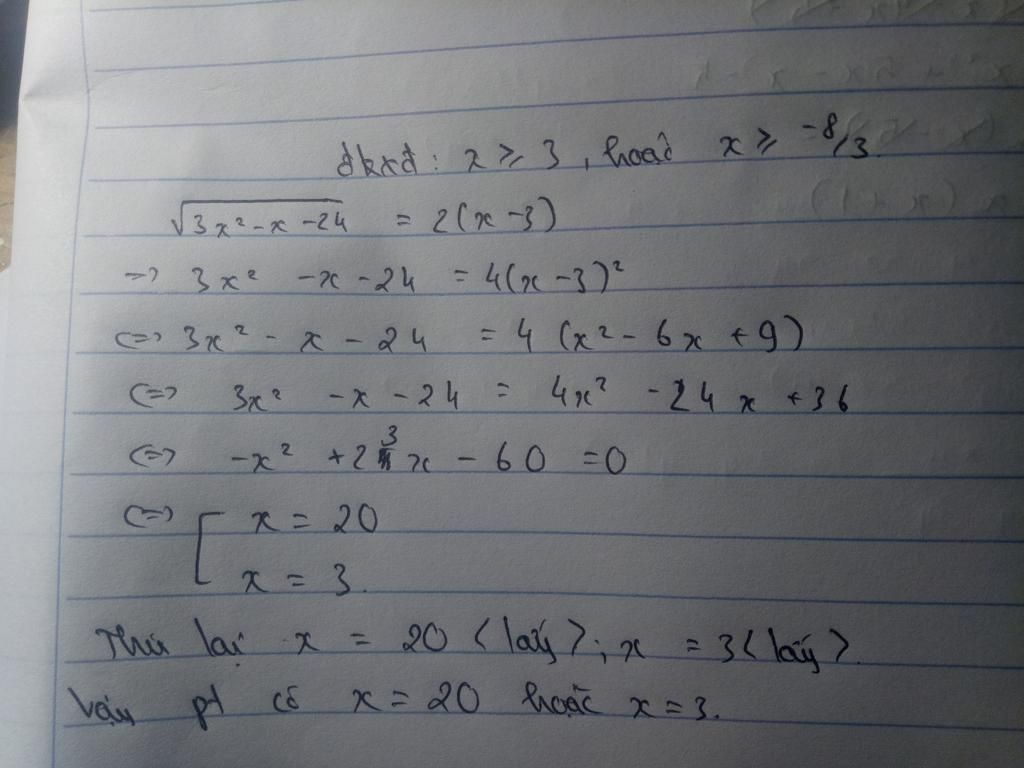 đkxđ: x ⩾ 3, hoặc x ⩾ -8/3.
√(3x² - x - 24) = 2(x - 3)
=> 3x² - x - 24 = 4(x - 3)²
<=> 3x² - x - 24 = 4 (x² - 6x + 9)
<=> 3x² - x - 24 = 4x² - 24x + 36
<=> -x² + 23x - 60 = 0
<=> [ x = 20
x = 3.
Thử lại x = 20 <lấy>; x = 3 <lấy>.
Vậy pt có x = 20 hoặc x = 3.